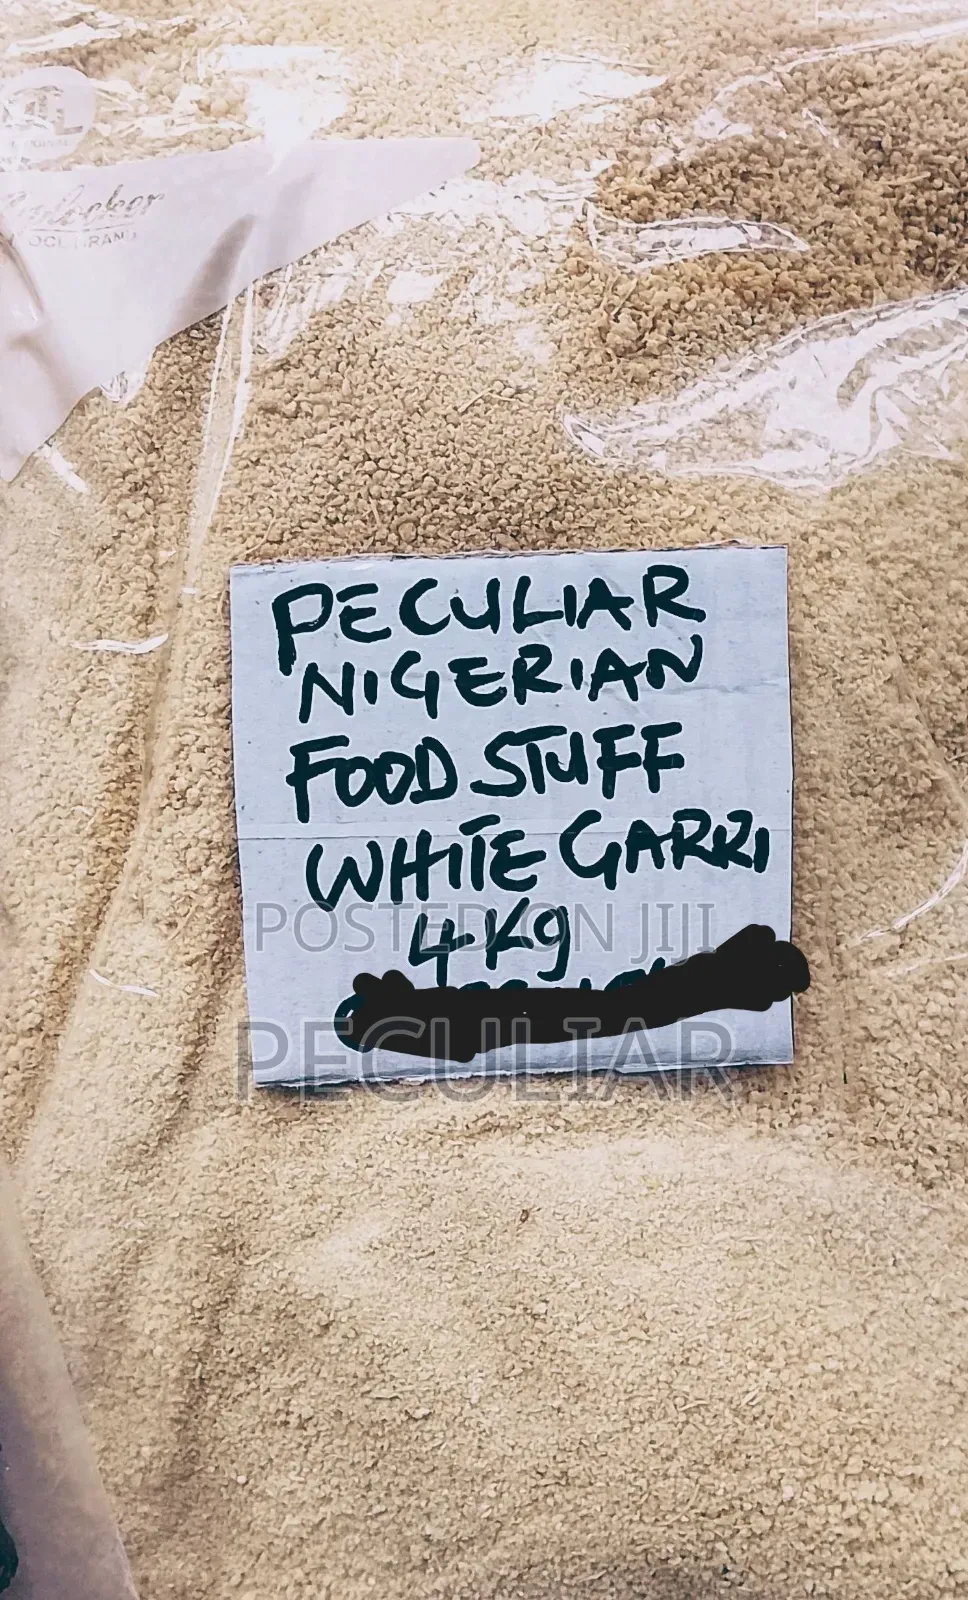 PECULIAR
NIGERIAN
FOOD STUFF
WHITE GARRI
POSTED ON JIJI
4Kg
PECULIAR